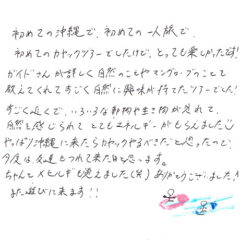 初めての沖縄で、初めての一人旅で、
初めてのカヤックツアーでしたけど、とっても楽しかったです!
ガイドさんが詳しく自然のことやマングローブのことで
教えてくれてすごく自然に興味が持てたツアーでした!
すごく近くで、いろいろな動物や生き物が見れて、
自然を感じられて とてもエネルギーがもらえました
やっぱり沖縄に来たらカヤックやるべきだと思ったので、
今度は友達もつれて来たいと思います。
ちゃんとメヒルギも覚えました(笑) ありがとうございました!
また遊びに来ます!!